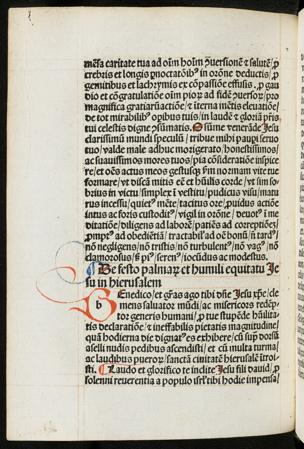 mẽsa caritate tua ad oĩm hoĩm ꝯuersionẽ & salutẽ, ꝓ
crebris et longis ꝓuocatõibꝰ in orõne deductis, ꝓ
gemitibus et lachrymis ex cõpassiõe effusis, ꝓ gau
dio et cõgratulatiõe oĩm pior ad fidẽ ꝯuersor/ pro
magnifica gratiarũactiõe/ & iterna mẽtis eleuatiõe/
de tot mirabilibꝰ opibus tuis/ in laudẽ & gloriã pr̃is
tui celestis digne ꝯsũmatis. O sũme venerãde Jesu
clarissimũ mundi speculũ/ tribue mihi paupi seruo
tuo/ valde male adhuc morigerato/ honestissimos/
ac suauissimos mores tuos/ pia cõsideratiõe inspice
re/ et oẽs actus meos gestusqꝫ ꝑm normam vite tue
formare/ vt discã mitis eẽ et hũilis corde/ vt sim so-
brius in victu/ simplex ĩ vestitu/ pudicus visu/ matu
rus incessu/ quietꝰ mẽte/ tacitus ore/ ꝓuidus actiõe
intus ac foris custoditꝰ/ vigil in orõne/ deuotꝰ ĩ me
ditatiõe/ diligens ad laborẽ/ patiẽs ad correptiõez/
ꝓmptꝰ ad obediẽtiã/ tractabil' ad oẽ bonũ/ ĩ tardꝰ/
nõ negligens/ nõ tristis/ nõ turbulentꝰ/ nõ vagꝰ/ nõ
clamorosus/ sꝫ pi'/ seren'/ iocũdus ac modestus.
De festo palmar et humili equitatu Je
su in hierusalem
BEnedico/ et gr̃as ago tibi dñe Jesu xp̃e/ cle
mens saluator mũdi/ ac misericors redẽp-
tor generis humani/ ꝓ tue stupẽde hũilita-
tis declaratiõe/ & ineffabilis pietatis magnitudine/
quã hodierna die dignatꝰ es exhibere/ cũ suꝑ dorsũ
aselli nudis pedibus ascendisti/ et cũ multa turma/
ac laudibus pueror/ sanctã ciuitatẽ hierusalẽ itroi-
sti. Laudo et glorifico te inclite Jesu fili dauid/ ꝓ
solenni reuerentia a populo isrl' tibi hodie impensa/